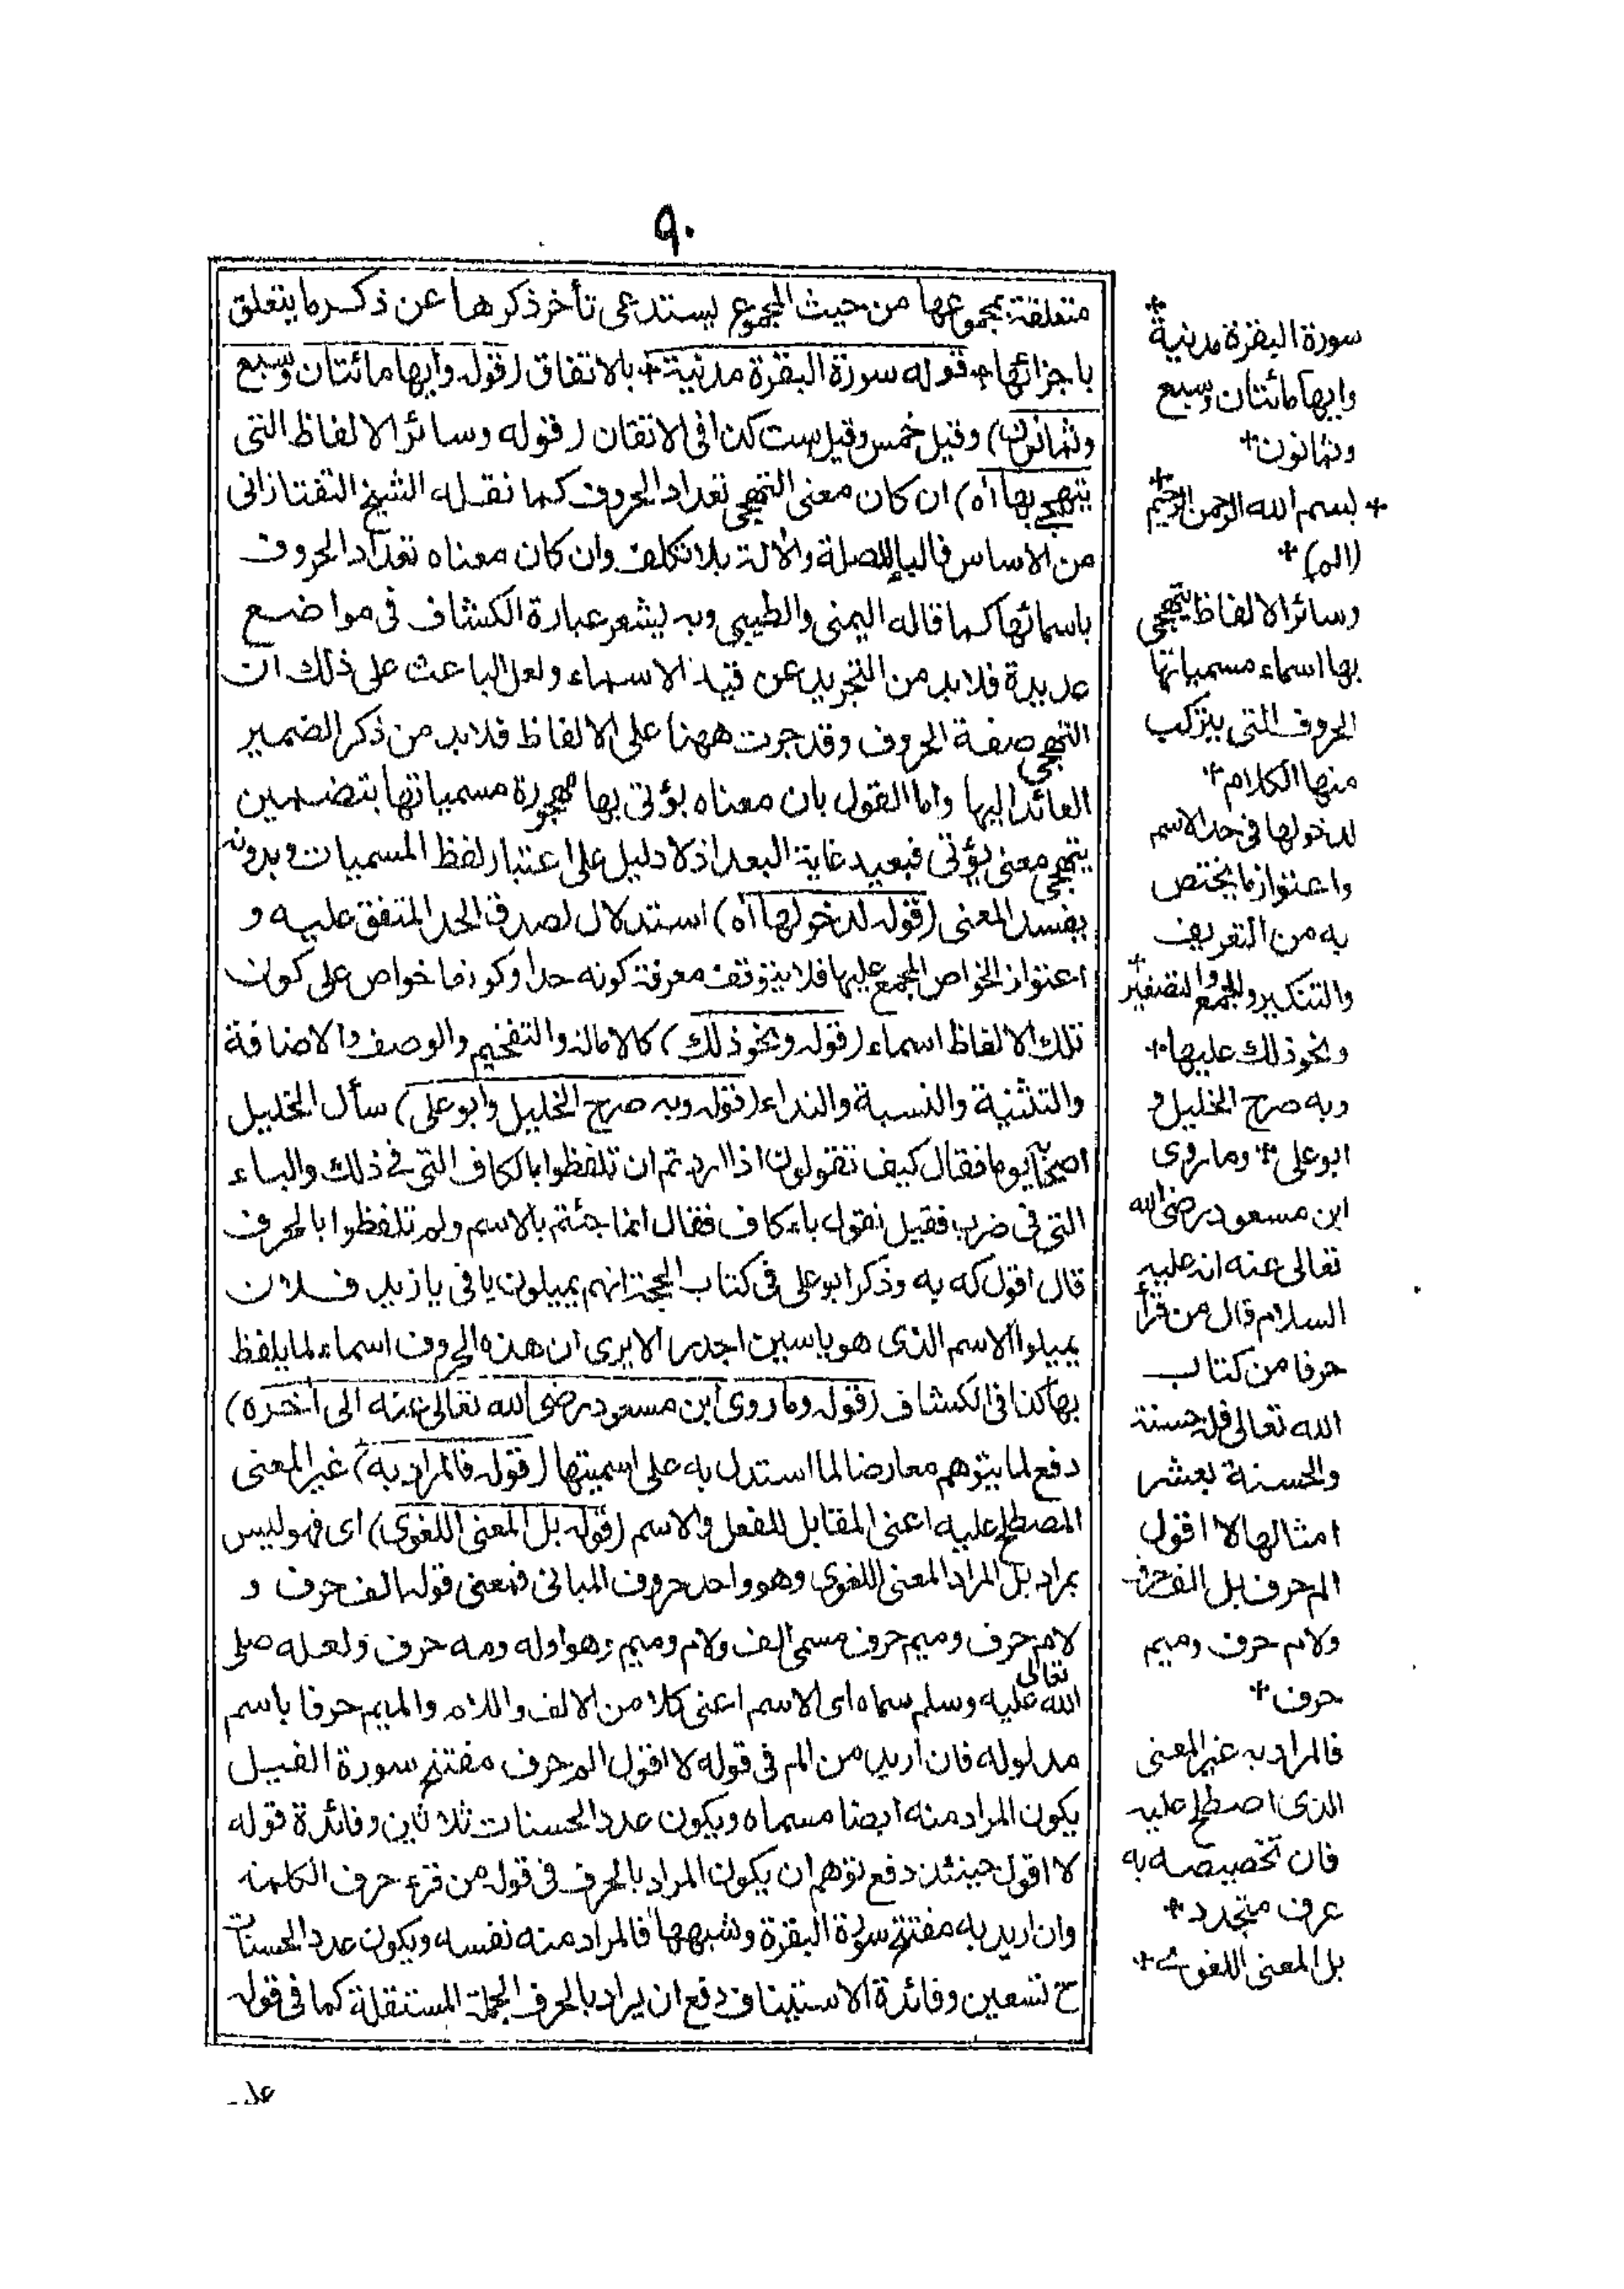 ٩٠
متعلقة بمجموعها من حيث المجموع يستدعى تأخر ذكرها عن ذكر ما يتعلق
باجزائها + قوله سورة البقرة مدنية + بالاتفاق (قوله وآيها مائتان وسبع
وثمانون) وقيل خمس وقيل ست كذا فى الاتقان (قوله وسائر الالفاظ التى
يتهجى بها اه) ان كان معنى التهجى تعداد الحروف كما نقله الشيخ التفتازانى
من الاساس فالباء للصلة والآلة بلا تكلف وان كان معناه تعداد الحروف
باسمائها كما قاله اليمنى والطيبى وبه يشعر عبارة الكشاف فى مواضع
عديدة فلابد من التجريد عن قيد الاسماء ولعل الباعث على ذلك ان
التهجى صفة الحروف وقد جرت ههنا على الالفاظ فلابد من ذكر الضمير
العائد اليها واما القول بان معناه يؤتى بها مهجورة مسمياتها بتضمين
يتهجى معنى يؤتى فبعيد غاية البعد اذ لا دليل على اعتبار لفظ المسميات وبدونه
يفسد المعنى (قوله لدخولها اه) استدلال لصدق الحد المتفق عليه و
اعتوار الخواص المجمع عليها فلا يتوقف معرفة كونه حدا وكونها خواص على كون
تلك الالفاظ اسماء (قوله ونحو ذلك) كالامالة والتفخيم والوصف والاضافة
والتثنية والنسبة والنداء (قوله وبه صرح الخليل وابو على) سأل الخليل
اصحابه يوما فقال كيف تقولون اذا اردتم ان تلفظوا بالكاف التى فى ذلك والباء
التى فى ضرب فقيل نقول باء كاف فقال انما جئتم بالاسم ولم تلفظوا بالحرف
قال اقول كه به وذكر ابو على فى كتاب الحجة انهم يميلون يا فى يا زيد فلان
يميلوا الاسم الذى هو ياسين اجدر الا يرى ان هذه الحروف اسماء لما يلفظ
بها كذا فى الكشاف (قوله وما روى ابن مسعود رضى الله تعالى عنه الى آخره)
دفع لما يتوهم معارضا لما استدل به على اسميتها (قوله فالمراد به) غير المعنى
المصطلح عليه اعنى المقابل للفعل والاسم (قوله بل المعنى اللغوى) اى فهو ليس
بمراد بل المراد المعنى اللغوى وهو واحد حروف المبانى فمعنى قوله الف حرف و
لام حرف وميم حرف مسمى الف ولام وميم وهو اوله ومه حرف ولعله صلى
الله تعالى عليه وسلم سماه اى الاسم اعنى كلا من الالف واللام والميم حرفا باسم
مدلوله فان اريد من الم فى قوله لا اقول الم حرف مفتتح سورة الفيل
يكون المراد منه ايضا مسماه ويكون عدد الحسنات ثلاثين وفائدة قوله
لا اقول حينئذ دفع توهم ان يكون المراد بالحرف فى قوله من قرء حرف الكلمة
وان اريد به مفتتح سورة البقرة وشبهها فالمراد منه نفسه ويكون عدد الحسنات
ح تسعين وفائدة الاستيناف دفع ان يراد بالحرف الجملة المستقلة كما فى قوله
عليه
سورة البقرة مدنية
وايها مائتان وسبع
وثمانون +
+ بسم الله الرحمن الرحيم +
(الم) +
وسائر الالفاظ يتهجى
بها اسماء مسمياتها
الحروف التى يتركب
منها الكلام +
لدخولها فى حد الاسم
واعتوار ما يختص
به من التعريف
والتنكير والجمع والتصغير +
ونحو ذلك عليها +
وبه صرح الخليل و
ابو على + وما روى
ابن مسعود رضى الله
تعالى عنه انه عليه
السلام قال من قرأ
حرفا من كتاب
الله تعالى فله حسنة
والحسنة بعشر
امثالها لا اقول
الم حرف بل الف حرف
ولام حرف وميم
حرف +
فالمراد به غير المعنى
الذى اصطلح عليه
فان تخصيصه به
عرف متجدد +
بل المعنى اللغوى +